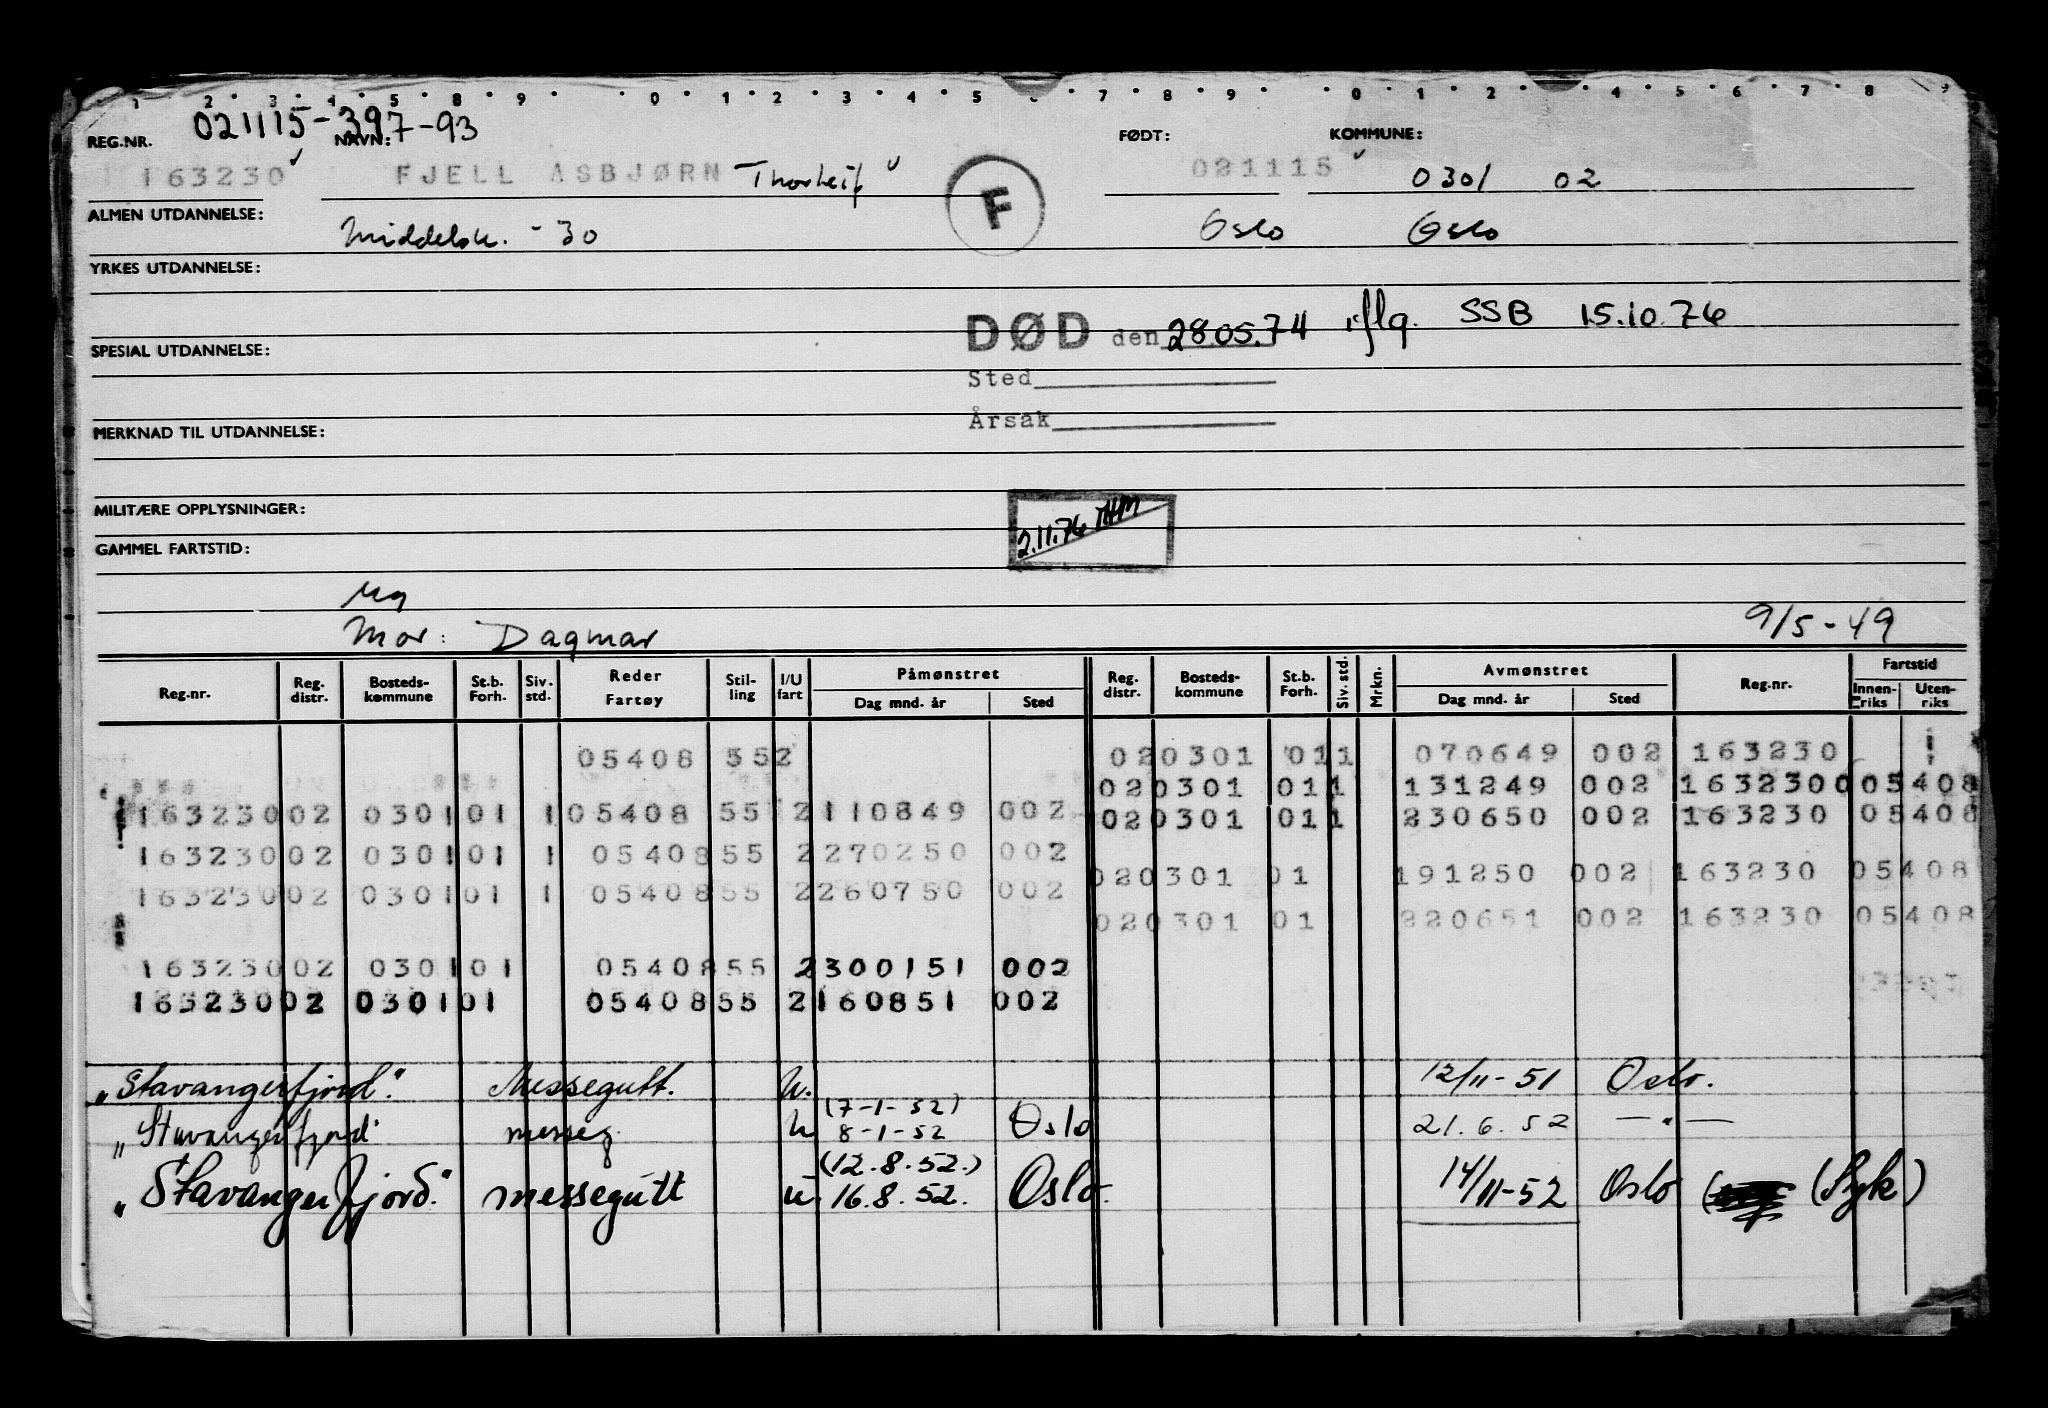 1 2 3 4 5 8 9 0 1 2 3 4 5 6 7 8 9 0 1 2 4 5 6 7 8
021115-397-93
REG.NR. NAVN: FØDT: KOMMUNE:
163230 FJELL ASBJØRN Thorleif F 021115 0301 02
ALMEN UTDANNELSE: Middelsk. - 30 Oslo Oslo
YRKES UTDANNELSE:
DØD den 28.05.74 iflg. SSB 15.10.76
SPESIAL UTDANNELSE:
Sted
Årsak
MERKNAD TIL UTDANNELSE:
MILITÆRE OPPLYSNINGER:
2.11.76 THM
GAMMEL FARTSTID:
Ug
Mor: Dagmar 9/5-49
Reg.nr. Reg. distr. Bosteds-kommune St.b. Forh. Siv. std. Reder Fartøy Stil-ling I/U fart Påmønstret Dag mnd. år Sted Reg. distr. Bosteds-kommune St.b. Forh. Siv. std. Mrkn. Avmønstret Dag mnd. år Sted Reg.nr. Fartstid Innen-riks Uten-riks
05408 552 020301 011 070649 002 163230
020301 011 131249 002 1632300 05408
163230 02 0301 01 1 05408 55 2 110849 002 020301 011 230650 002 163230 05408
163230 02 0301 01 1 05408 55 2 270250 002
020301 01 191250 002 163230 05408
163230 02 0301 01 1 05408 55 2 260750 002
020301 01 220651 002 163230 05408
163230 02 0301 01 05408 55 2 300151 002
163230 02 0301 01 05408 55 2 160851 002
"Stavangerfjord". Messegutt. U. 12/11-51 Oslo.
"Stavangerfjord" messeg. U (7-1-52) 8-1-52 Oslo 21.6.52 —"—
"Stavangerfjord." messegutt U. (12.8.52.) 16.8.52. Oslo. 14/11-52 Oslo (Syk)